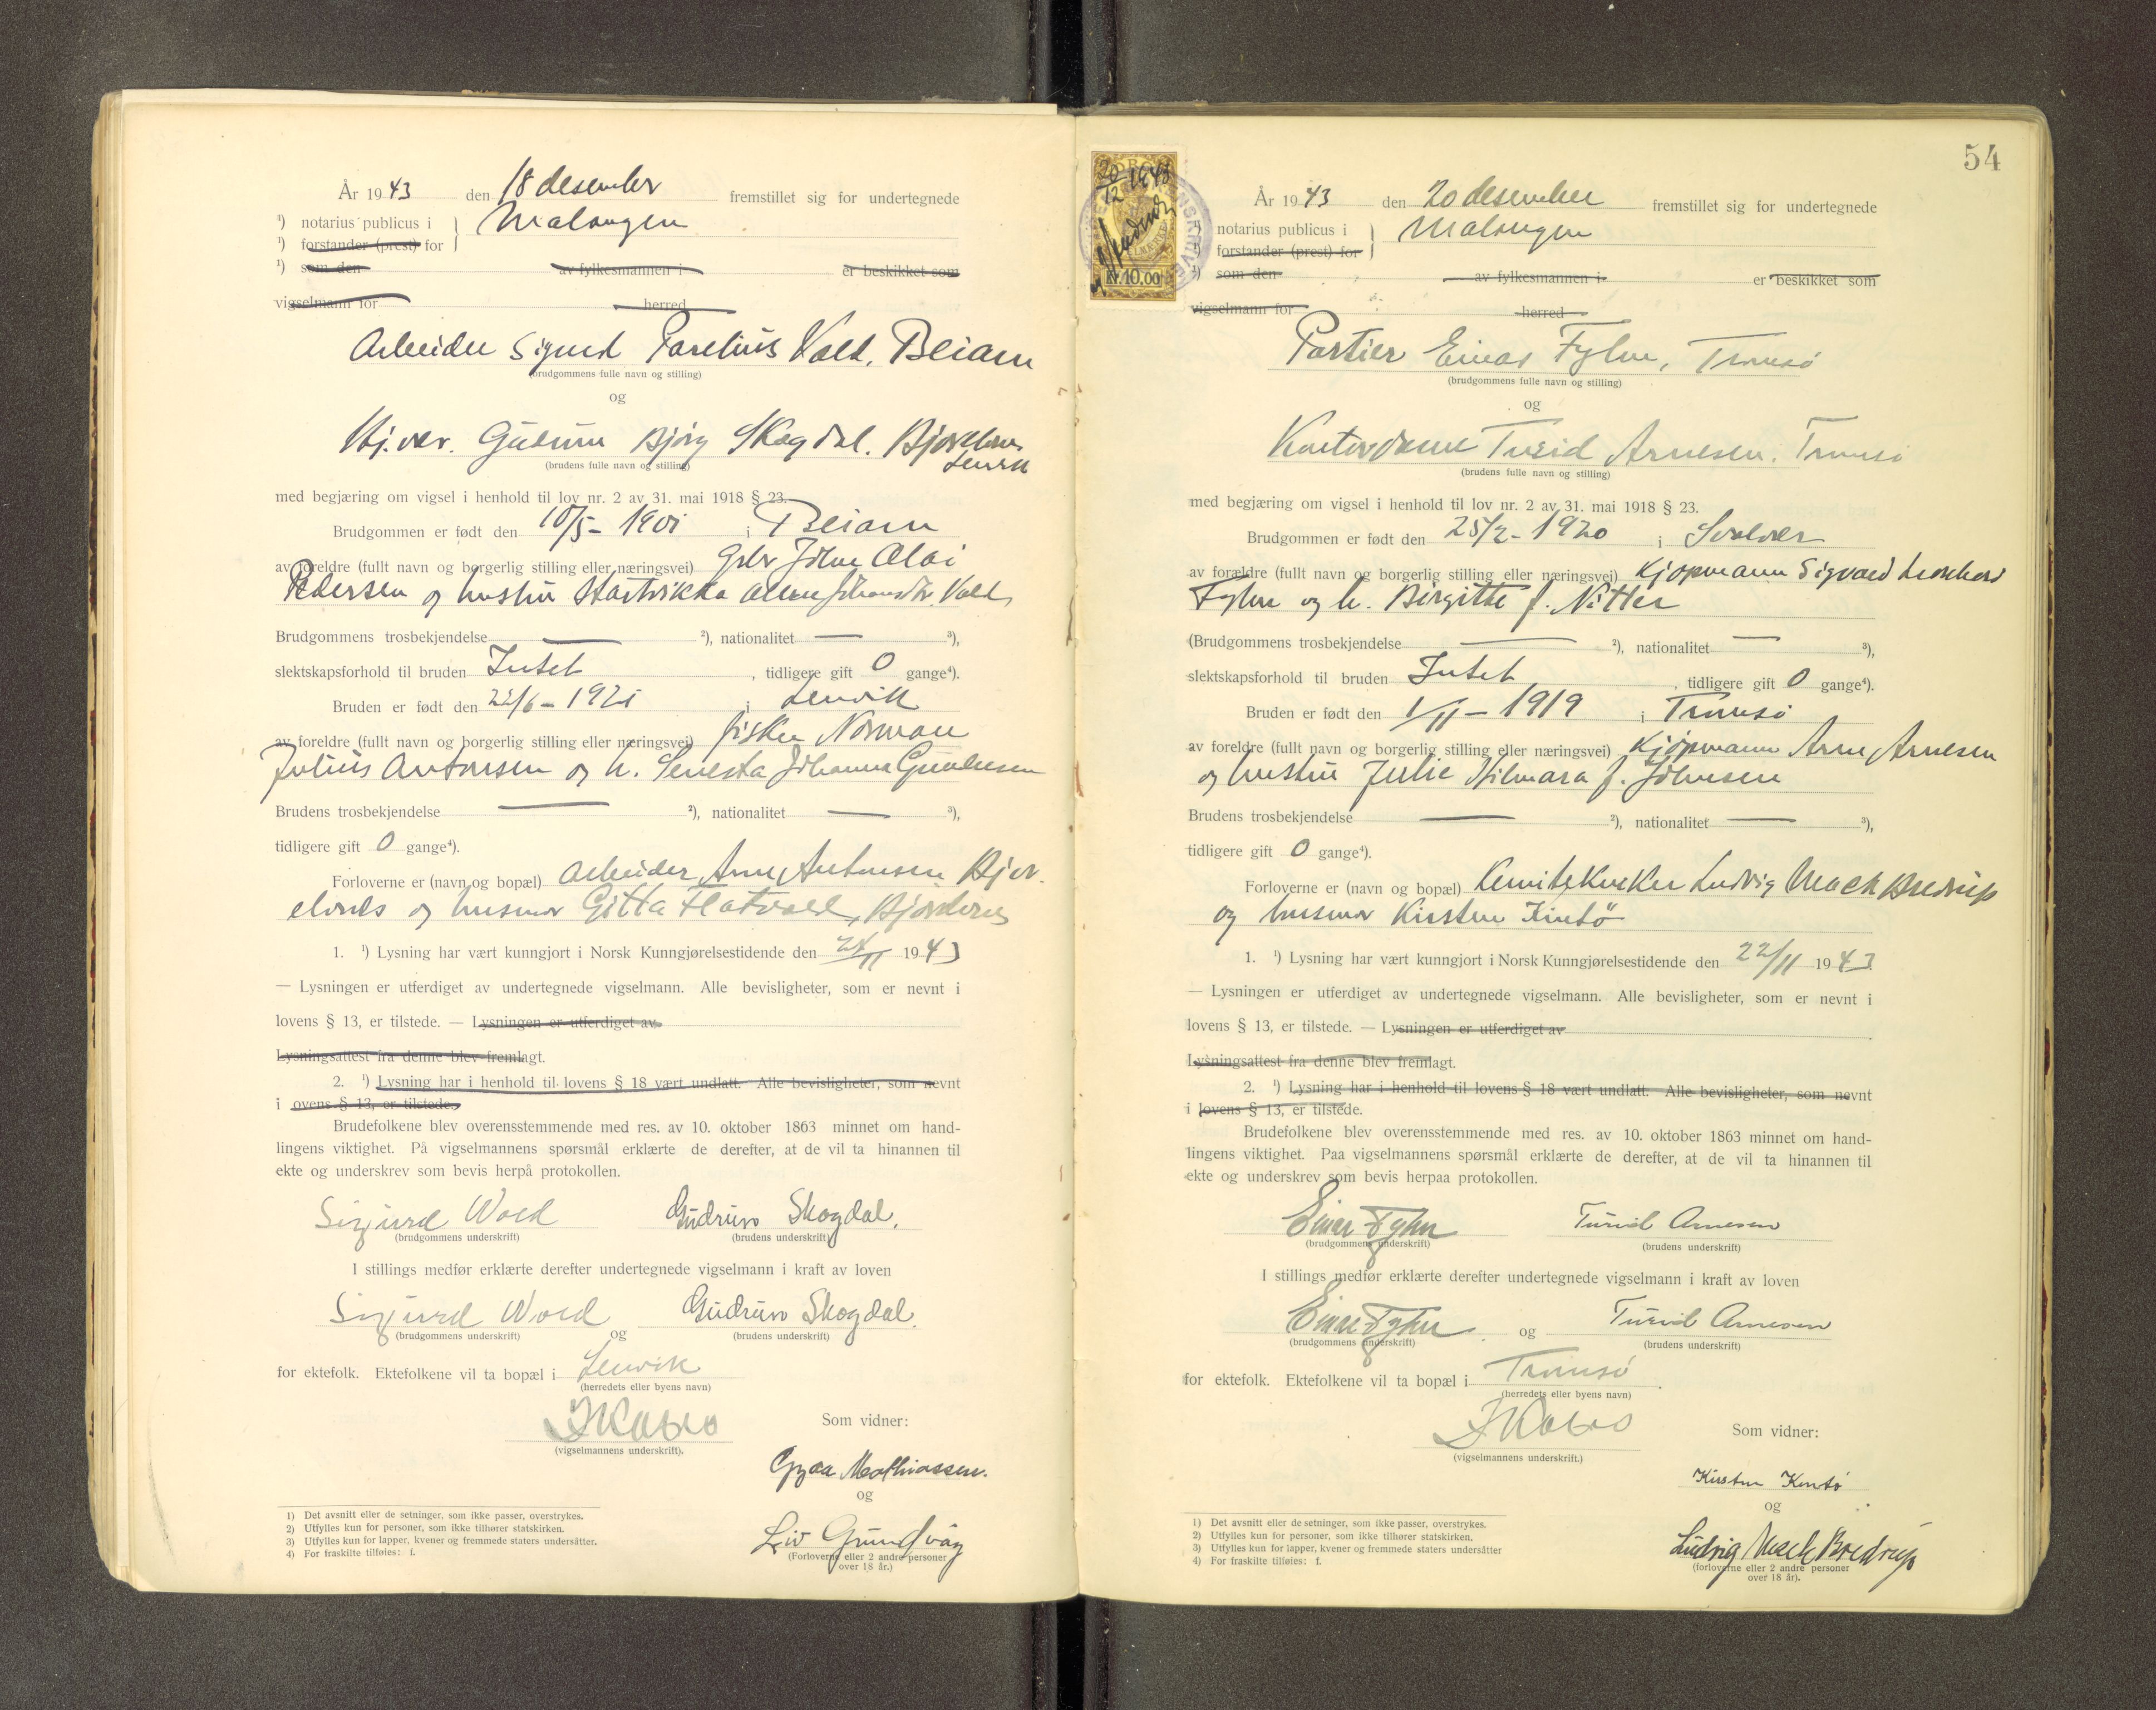 År 1943 den 18 desember fremstillet sig for undertegnede
¹) notarius publicus i } Malangen
¹) forstander (prest) for
¹) som den av fylkesmannen i er beskikket som
vigselmann for herred
Arbeider Sigurd Parelius Vold, Beiarn
(brudgommens fulle navn og stilling)
og
Hj.ver. Gudrun Bjørg Skogdal. Bjorelvnes
Lenvik
(brudens fulle navn og stilling)
med begjæring om vigsel i henhold til lov nr. 2 av 31. mai 1918 § 23.
Brudgommen er født den 10/5 - 1901 i Beiarn
av foreldre (fullt navn og borgerlig stilling eller næringsvei) Johan Olai
Pedersen og hustru Vold
Brudgommens trosbekjendelse — ²), nationalitet — ³),
slektskapsforhold til bruden Intet, tidligere gift 0 gange⁴).
Bruden er født den 22/6 - 1921 i Lenvik
av foreldre (fullt navn og borgerlig stilling eller næringsvei) fisker Norman
Julius Antonsen og h. Johanna Gundersen
Brudens trosbekjendelse — ²), nationalitet — ³),
tidligere gift 0 gange⁴).
Forloverne er (navn og bopæl) Arbeider Arne Antonsen Bjor-
elvnes og husmor Gitta Flatvold, Bjorelvnes
1. ¹) Lysning har vært kunngjort i Norsk Kunngjørelsestidende den 24/11 1943
— Lysningen er utferdiget av undertegnede vigselmann. Alle bevisligheter, som er nevnt i
lovens § 13, er tilstede. — Lysningen er utferdiget av
Lysningsattest fra denne blev fremlagt.
2. ¹) Lysning har i henhold til lovens § 18 vært undlatt. Alle bevisligheter, som nevnt
i ovens § 13, er tilstede.
Brudefolkene blev overensstemmende med res. av 10. oktober 1863 minnet om hand-
lingens viktighet. På vigselmannens spørsmål erklærte de derefter, at de vil ta hinannen til
ekte og underskrev som bevis herpå protokollen.
Sigurd Wold Gudrun Skogdal.
(brudgommens underskrift) (brudens underskrift)
I stillings medfør erklærte derefter undertegnede vigselmann i kraft av loven
Sigurd Wold og Gudrun Skogdal.
(brudgommens underskrift) (brudens underskrift)
for ektefolk. Ektefolkene vil ta bopæl i Lenvik
(herredets eller byens navn)
(vigselmannens underskrift).
Som vidner:
Mathiassen.
og
Liv Grundvåg
(Forloverne eller 2 andre personer
over 18 år.)
1) Det avsnitt eller de setninger, som ikke passer, overstrykes.
2) Utfylles kun for personer, som ikke tilhører statskirken.
3) Utfylles kun for lapper, kvener og fremmede staters undersåtter.
4) For fraskilte tilføies: f.
54
20/12 1943
Kr. 10.00
År 1943 den 20 desember fremstillet sig for undertegnede
notarius publicus i } Malangen
forstander (prest) for
¹) som den av fylkesmannen i er beskikket som
vigselmann for herred
Portier Einar Fyhn, Tromsø
(brudgommens fulle navn og stilling)
og
Kontordame Turid Arnesen. Tromsø
(brudens fulle navn og stilling)
med begjæring om vigsel i henhold til lov nr. 2 av 31. mai 1918 § 23.
Brudgommen er født den 25/2 - 1920 i Svolvær
av forældre (fullt navn og borgerlig stilling eller næringsvei) Kjøpmann Sigvard Leonhard
Fyhn og h. Birgitte f. Nitter
(Brudgommens trosbekjendelse — ²), nationalitet — ³),
slektskapsforhold til bruden Intet, tidligere gift 0 gange⁴).
Bruden er født den 1/11 - 1919 i Tromsø
av foreldre (fullt navn og borgerlig stilling eller næringsvei) Kjøpmann Arne Arnesen
og hustru Julie Hilmara f. Johnsen
Brudens trosbekjendelse — ²), nationalitet — ³),
tidligere gift 0 gange⁴).
Forloverne er (navn og bopæl) Ludvig Mack Bredrup
og husmor Kirsten Kintø
1. ¹) Lysning har vært kunngjort i Norsk Kunngjørelsestidende den 22/11 1943
— Lysningen er utferdiget av undertegnede vigselmann. Alle bevisligheter, som er nevnt i
lovens § 13, er tilstede. — Lysningen er utferdiget av
Lysningsattest fra denne blev fremlagt.
2. ¹) Lysning har i henhold til lovens § 18 vært undlatt. Alle bevisligheter, som nevnt
i lovens § 13, er tilstede.
Brudefolkene blev overensstemmende med res. av 10. oktober 1863 minnet om hand-
lingens viktighet. Paa vigselmannens spørsmål erklærte de derefter, at de vil ta hinannen til
ekte og underskrev som bevis herpaa protokollen.
Einar Fyhn Turid Arnesen
(brudgommens underskrift) (brudens underskrift)
I stillings medfør erklærte derefter undertegnede vigselmann i kraft av loven
Einar Fyhn og Turid Arnesen
(brudgommens underskrift) (brudens underskrift)
for ektefolk. Ektefolkene vil ta bopæl i Tromsø
(herredets eller byens navn)
(vigselmannens underskrift.)
Som vidner:
Kirsten Kintø
og
Ludvig Mack Bredrup
(forloverne eller 2 andre personer
over 18 år).
1) Det avsnitt eller de setninger, som ikke passer, overstrykes.
2) Utfylles kun for personer, som ikke tilhører statskirken.
3) Utfylles kun for lapper, kvener og fremmede staters undersåtter
4) For fraskilte tilføies: f.